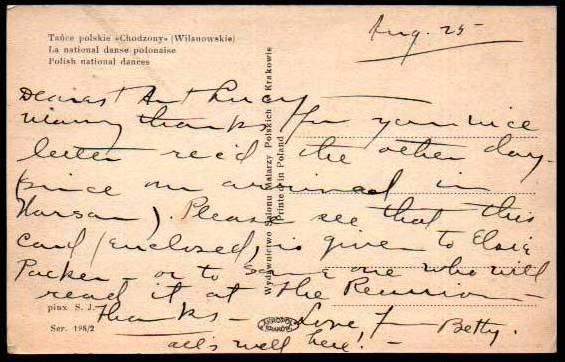 Tańce polskie «Chodzony» (Wilanowskie)
La national danse polonaise
Polish national dances
Aug. 25
Dearest Aunt Lucy —
Many thanks for your nice
letter rec'd the other day -
(since our arrival in
Warsaw). Please see that this
card, enclosed, is given to Elsie
Packer - or to some one who will
read it at the Reunion -
Thanks - Love, Betty.
all's well here! -
pinx. S. J.
Ser. 198/2
Wydawnictwo Salonu Malarzy Polskich w Krakowie
Printed in Poland
AKROPOL
KRAKÓW